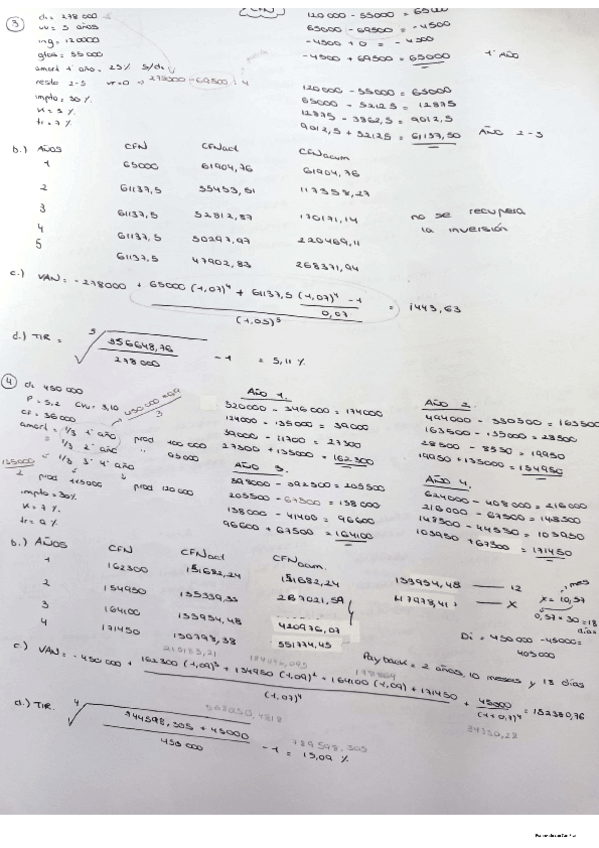 CFN
③ di = 278 000
vu = 5 años
ing = 120000
gtos = 55 000
amort 1º año = 25% s/di
resto 2-5 vr=0
impto = 30%
k = 5 %
tr = 7 %
65000 - 69500 = -4500
-4500 + 69500 = 65000 1º AÑO
120 000 - 55000 = 65000
65000 - 52125 = 12875
12875 - 3862,5 = 9012,5
9012,5 + 52125 = 61137,50 AÑO 2-5
b.) AÑOS CFN CFNact CFNacum
1 65000 61904,76 61904,76
2 61137,5 55453,51 117358,27
3 61137,5 52812,87 170171,14
4 61137,5 50297,97 220469,11
5 61137,5 47902,83 268371,94
no se recupera
la inversión
c.) VAN = -278000 + 65000 (1,07)⁴ + 61137,5 (1,07)⁴ - 1
0,07
(1,05)⁵
= 1443,63
d.) TIR =
5 356648,76
278 000
- 1 = 5,11 %
④ di 450 000
P = 5,2 CVu = 3,10
CF = 36000
amort = 1/3 1º año prod 100 000
= 1/3 2º año " 95000
= 1/3 3º 4º año
135000
2
prod 115000 prod 120 000
impto = 30%
k = 7 %
tr = 9 %
Año 1.
520000 - 346 000 = 174000
174000 - 135 000 = 39000
39000 - 11700 = 27300
27300 + 135000 = 162300
Año 2.
494000 - 330500 = 163500
163500 - 135000 = 28500
28500 - 8550 = 19950
19950 + 135000 = 154950
Año 3.
598000 - 392500 = 205500
205500 - 67500 = 138 000
138000 - 41400 = 96600
96600 + 67500 = 164100
Año 4.
624000 - 408000 = 216000
216000 - 67500 = 148500
148500 - 44550 = 103950
103950 + 67500 = 171450
b.) AÑOS CFN CFNact CFNacum
1 162300 151682,24 151682,24
2 154950 135339,33 287021,57
3 164100 133954,48 420976,07
4 171450 130798,38 551774,45
133954,48 — 12 mes
117978,41 — X x = 10,57
0,57 × 30 = 18
días
Di = 450000 - 45000 =
405000
Payback = 2 años, 10 meses y 18 días
c.) VAN = -450 000 + 162300 (1,09)³ + 154950 (1,09)² + 164100 (1,09) + 171450
(1,07)⁴
+ 45000
(1+0,7)⁴
= 152380,76
d.) TIR.
4 744598,305 + 45000
450 000
- 1 = 15,09 %
789598,305